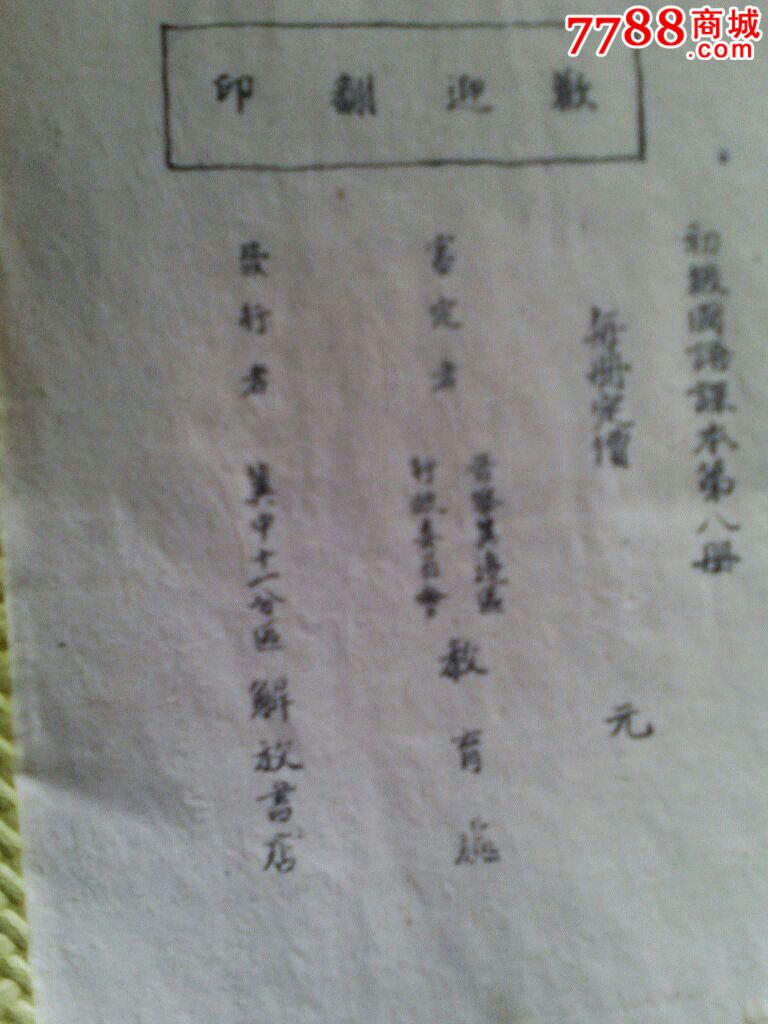 7788商城
.com
歡迎翻印
初級國語課本第八冊
每冊定價 元
審定者 晉察冀邊區
行政委員會 教育處
發行者 冀中十一分區 解放書店